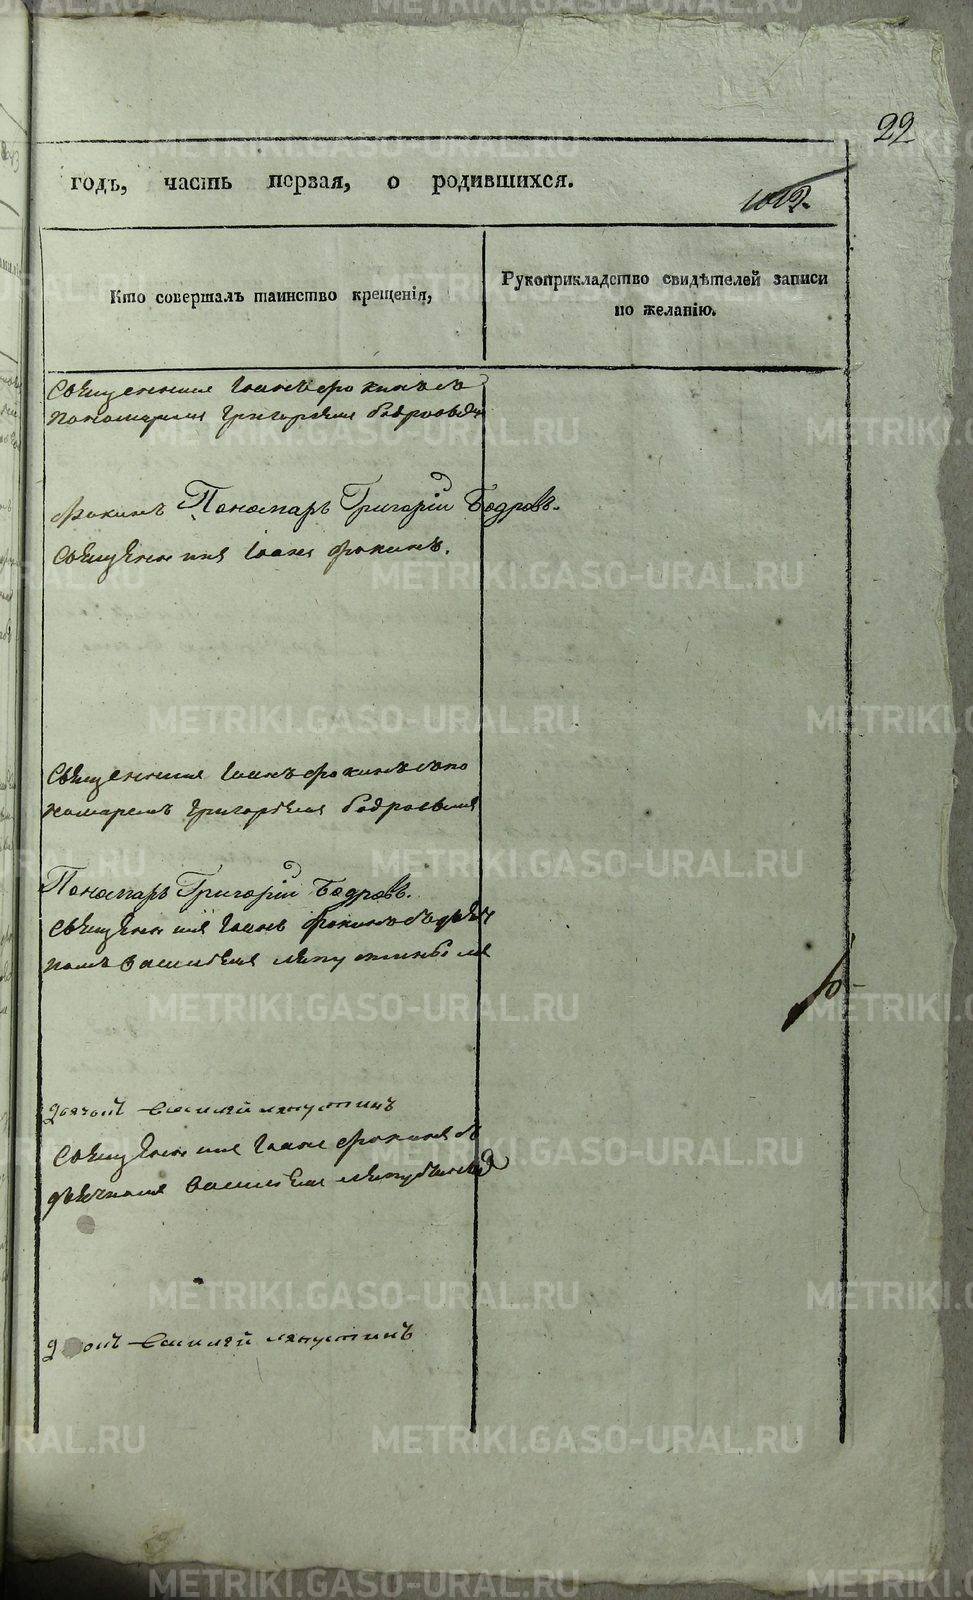 22
годъ, часть первая, о родившихся.
1012.
Кто совершалъ таинство крещенія,
Рукоприкладство свидѣтелей записи
по желанію.
Священникъ Іоаннъ Фокинъ съ
пономаремъ Григоріемъ Бодровымъ
Фокинъ Пономарь Григорій Бодровъ.
Священникъ Іоаннъ Фокинъ.
Священникъ Іоаннъ Фокинъ съ по
номаремъ Григоріемъ Бодровымъ
Пономарь Григорій Бодровъ.
Священникъ Іоаннъ Фокинъ съ дьяч
комъ Василіемъ
Дьячокъ Василій
Священникъ Іоаннъ Фокинъ съ
дьячкомъ Василіемъ
Василій
METRIKI.GASO-URAL.RU